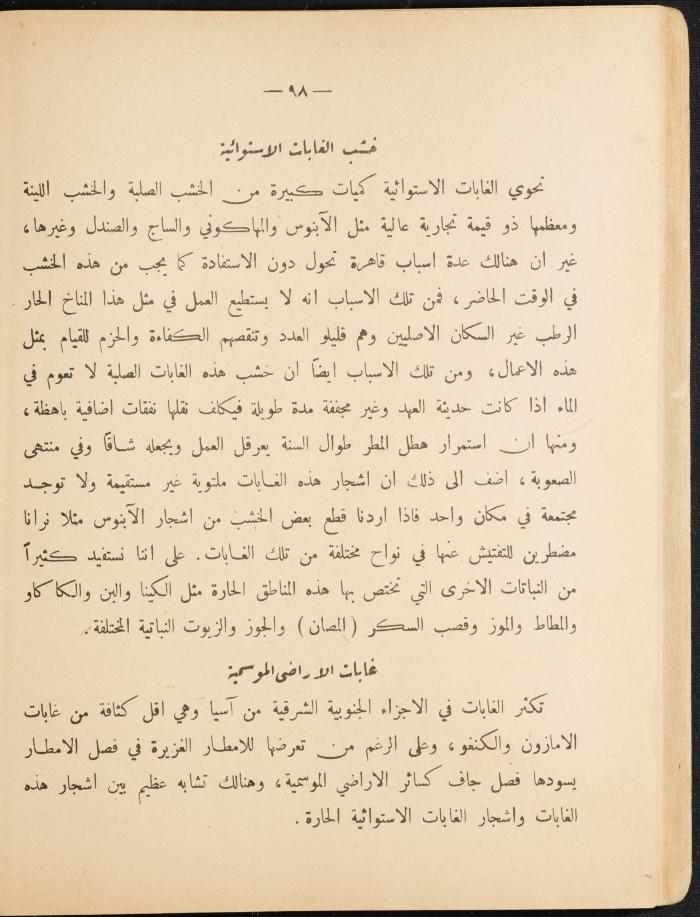 — ٩٨ —
خشب الغابات الاستوائية
تحوي الغابات الاستوائية كميات كبيرة من الخشب الصلبة والخشب اللينة
ومعظمها ذو قيمة تجارية عالية مثل الآبنوس والمهاكوني والساج والصندل وغيرها،
غير ان هنالك عدة اسباب قاهرة تحول دون الاستفادة كما يجب من هذه الخشب
في الوقت الحاضر، فمن تلك الاسباب انه لا يستطيع العمل في مثل هذا المناخ الحار
الرطب غير السكان الاصليين وهم قليلو العدد وتنقصهم الكفاءة والحزم للقيام بمثل
هذه الاعمال، ومن تلك الاسباب ايضاً ان خشب هذه الغابات الصلبة لا تعوم في
الماء اذا كانت حديثة العهد وغير مجففة مدة طويلة فيكلف نقلها نفقات اضافية باهظة،
ومنها ان استمرار هطل المطر طوال السنة يعرقل العمل ويجعله شاقاً وفي منتهى
الصعوبة، اضف الى ذلك ان اشجار هذه الغابات ملتوية غير مستقيمة ولا توجد
مجتمعة في مكان واحد فاذا اردنا قطع بعض الخشب من اشجار الآبنوس مثلا نرانا
مضطرين للتفتيش عنها في نواح مختلفة من تلك الغابات. على اننا نستفيد كثيراً
من النباتات الاخرى التي تختص بها هذه المناطق الحارة مثل الكينا والبن والكاكاو
والمطاط والموز وقصب السكر (المصان) والجوز والزيوت النباتية المختلفة.
غابات الاراضي الموسمية
تكثر الغابات في الاجزاء الجنوبية الشرقية من آسيا وهي اقل كثافة من غابات
الامازون والكنغو، وعلى الرغم من تعرضها للامطار الغزيرة في فصل الامطار
يسودها فصل جاف كسائر الاراضي الموسمية، وهنالك تشابه عظيم بين اشجار هذه
الغابات واشجار الغابات الاستوائية الحارة.